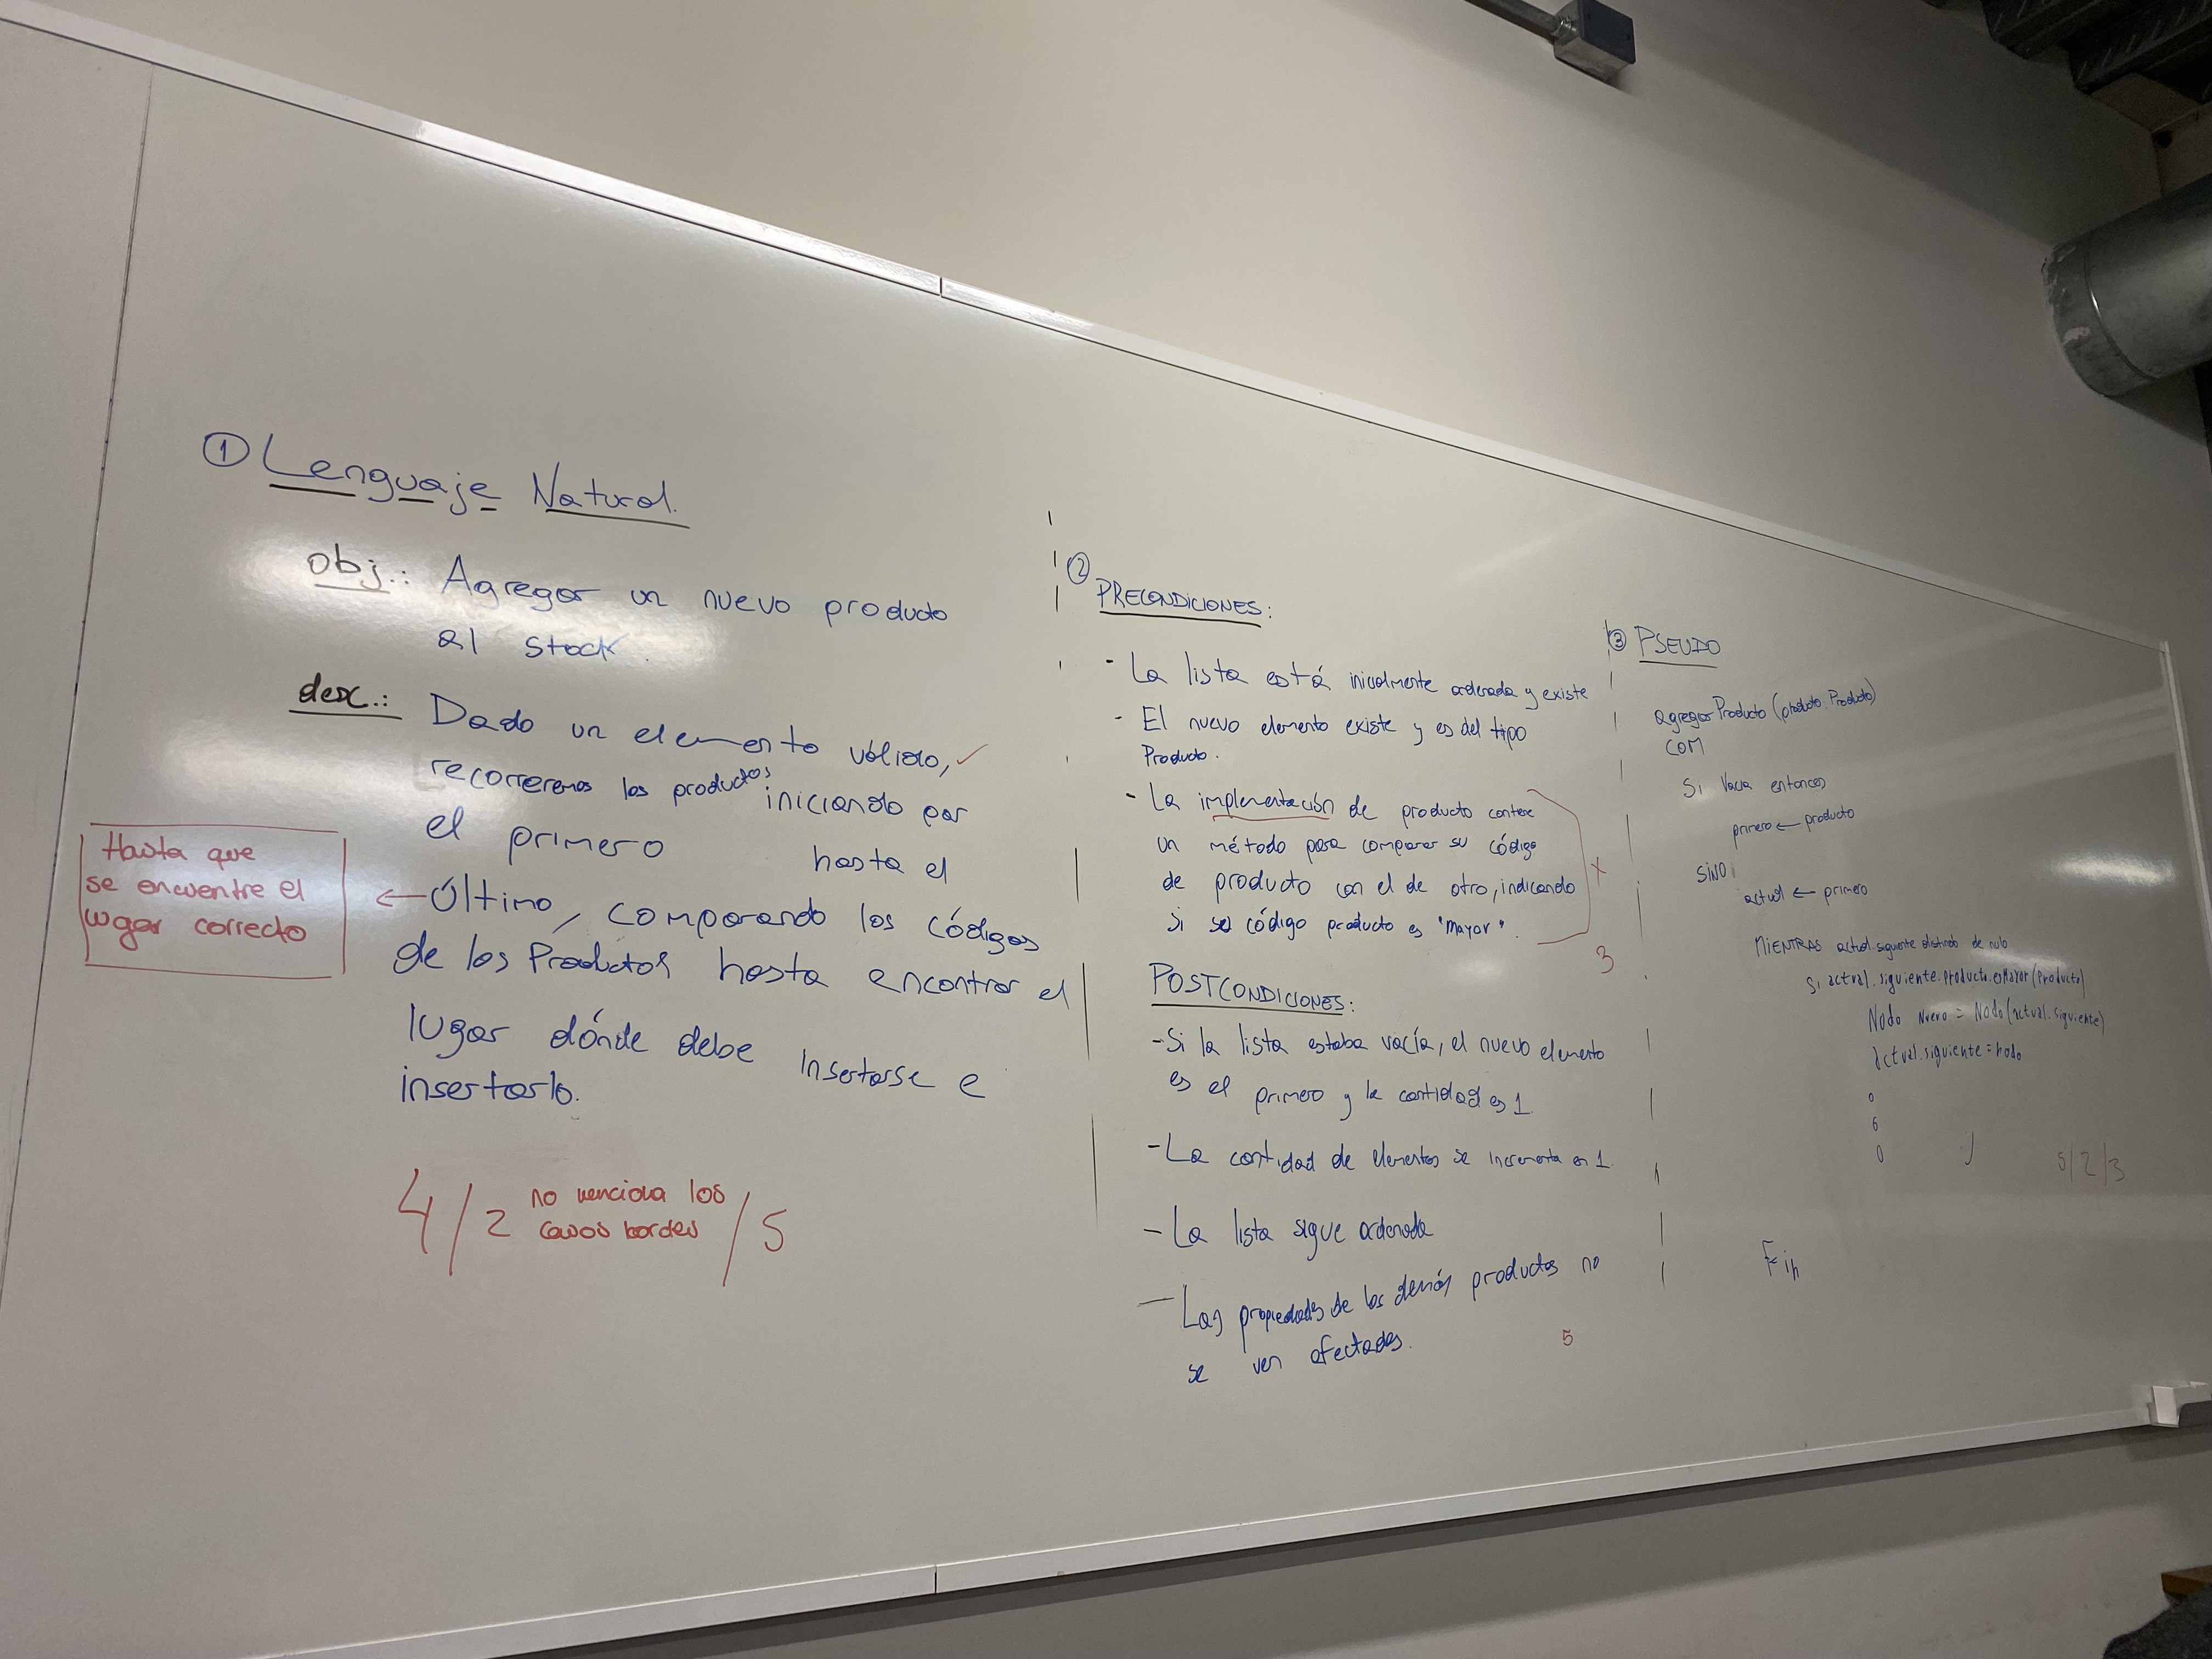 ① Lenguaje Natural.
obj.: Agregar un nuevo producto
al stock.
desc.: Dado un elemento válido, ✓
recorreremos los productos iniciando por
el primero hasta el
← Último, comparando los códigos
de los Productos hasta encontrar el
lugar dónde debe insertarse e
insertarlo.
Hasta que
se encuentre el
lugar correcto
4 / 2 no menciona los
casos bordes / 5
②
PRECONDICIONES:
- La lista está inicialmente ordenada y existe
- El nuevo elemento existe y es del tipo
Producto.
- La implementación de producto contiene
un método para comparar su código
de producto con el de otro, indicando
si su código producto es "mayor".
x
3
POSTCONDICIONES:
- Si la lista estaba vacía, el nuevo elemento
es el primero y la cantidad es 1
- La cantidad de elementos se incrementa en 1
- La lista sigue ordenada
- Las propiedades de los demás productos no
se ven afectadas.
5
③ PSEUDO
agregarProducto (producto: Producto)
COM
Si Vacia entonces
primero ← producto
SINO
actual ← primero
MIENTRAS actual.siguiente distinto de nulo
Si actual.siguiente.Producto.esMayor(Producto)
Nodo Nuevo = Nodo(actual.siguiente)
actual.siguiente = nodo
5/2/3
Fin